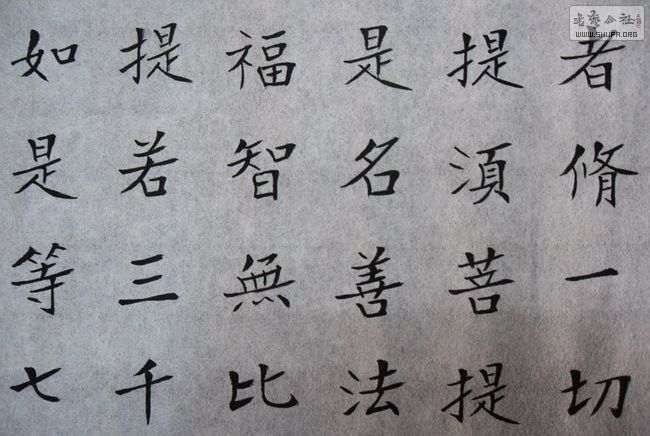 者脩一切
提湏菩提
是名善法
福智無比
提若三千
如是等七
WWW.SHUFA.ORG